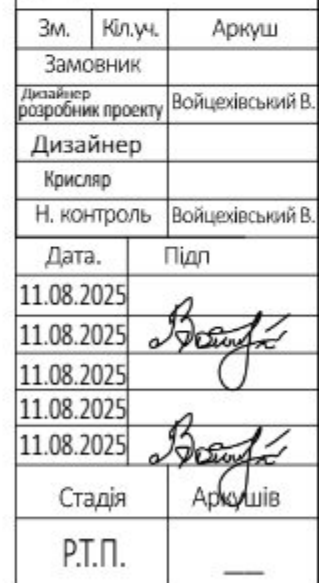 Зм. Кіл.уч. Аркуш
Замовник
Дизайнер
розробник проекту Войцехівський В.
Дизайнер
Крисляр
Н. контроль Войцехівський В.
Дата. Підп
11.08.2025
11.08.2025
11.08.2025
11.08.2025
11.08.2025
Стадія Аркушів
Р.Т.П. __